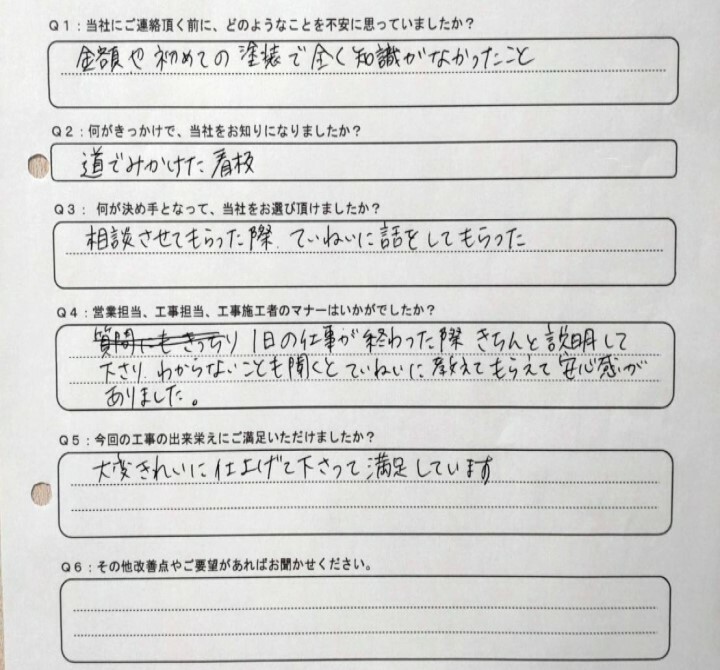 Q1：当社にご連絡頂く前に、どのようなことを不安に思っていましたか？
金額や初めての塗装で全く知識がなかったこと
Q2：何がきっかけで、当社をお知りになりましたか？
道でみかけた看板
Q3： 何が決め手となって、当社をお選び頂けましたか？
相談させてもらった際、ていねいに話をしてもらった
Q4：営業担当、工事担当、工事施工者のマナーはいかがでしたか？
質問にもきっちり 1日の仕事が終わった際 きちんと説明して
下さり わからないことも聞くとていねいに教えてもらえて安心感が
ありました。
Q5：今回の工事の出来栄えにご満足いただけましたか？
大変きれいに仕上げて下さって満足しています
Q6：その他改善点やご要望があればお聞かせください。